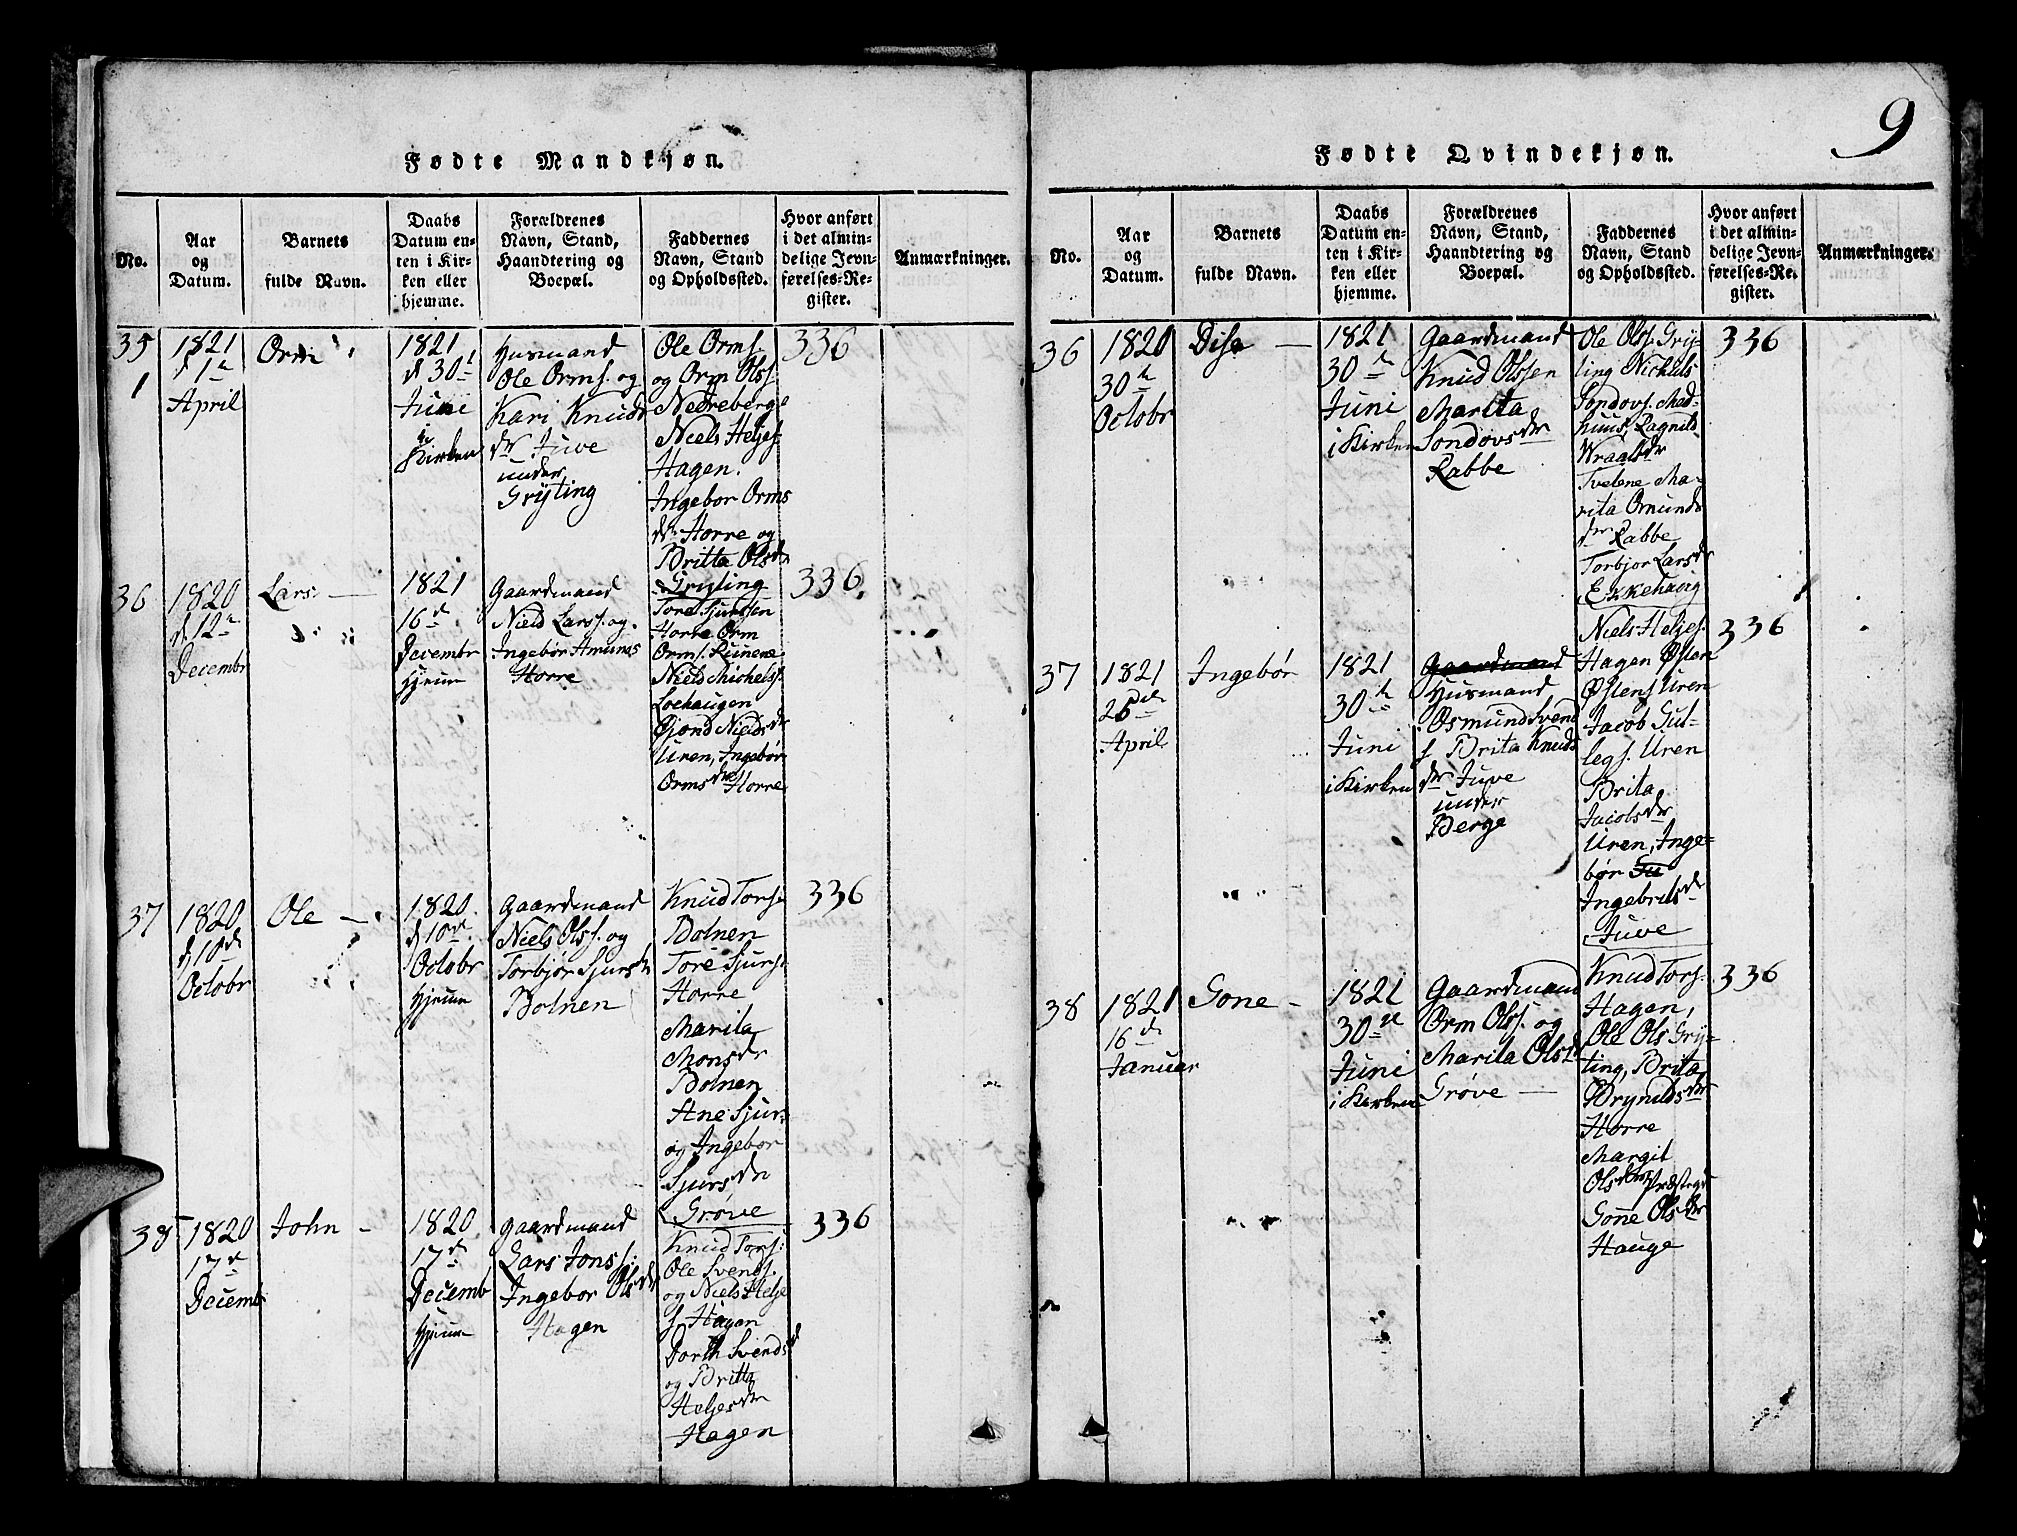 9
Fødte Mandkjøn.
No.
Aar
og
Datum.
Barnets
fulde Navn.
Daabs
Datum en-
ten i Kir-
ken eller
hjemme.
Forældrenes
Navn, Stand,
Haandtering og
Boepæl.
Faddernes
Navn, Stand
og Opholdssted.
Hvor anført
i det almin-
delige Jevn-
førelses-Re-
gister.
Anmærkninger.
35
1821
d 1n
April
Orm
1821
d 30t
Juni
i
Kirken
Husmand
Ole Orms. og
Kari Knuds
dr. Juve
under
Gryting
Ole Orms.
og Orm Olss.
Nedreberge
Niels Heljes.
Hagen.
Ingebor Orms
dr. Horre og
Britta Olsdr
Gryting
336
36
1820
d. 12n
Decembr
Lars
1821
16d
Decembr
Hjeme
Gaardmand
Nield Larss. og
Ingebør Amunds
Horre
Tore Sjurssen
Horre Orm
Orms.
Nield Michelss.
Loehaugen
Gjond Nieldsdr
Uren, Ingebør
Ormsdr Horre
336.
37
1820
d 10d
Octobr
Ole
1820
d 10d.
Octobr
Hjeme
Gaardmand
Niels Olss. og
Torbjør Sjursdr
Bolnen
Knud Tors.
Bolnen
Tore Sjurs.
Horre
Marita
Monsdr
Bolnen
Ane Sjur-
og Ingebor
Sjursdr
Grøve
336
38
1820
17d
Decembr
John
1820
17d
Decemb
Hjeme
Gaardmand
Lars Jonss.
Ingebor Olsdr
Hagen
Knud Tors.
Ole Svends.
og Niels Helje
s. Hagen
Dorth Svends
og Britta
Heljesdr
Hagen
336
Fødte Qvindekjøn.
No.
Aar
og
Datum.
Barnets
fulde Navn.
Daabs
Datum en-
ten i Kir-
ken eller
hjemme.
Forældrenes
Navn, Stand,
Haandtering og
Boepæl.
Faddernes
Navn, Stand
og Opholdssted.
Hvor anført
i det almin-
delige Jevn-
førelses-Re-
gister.
Anmærkninger.
36
1820
30te
Octobr
Dise
1821
30te
Juni
i Kirken
Gaardmand
Knud Olssen
Marita
Sondovsdr
Rabbe
Ole Olss. Gry-
ting Nichels
Sondovs. Mæd-
huus, Ragnild
Wraalsdr
Tvetene Ma-
rita Omunds
dr Rabbe
Torbjor Larsdr
Ekkehaug
336
37
1821
April
Ingebør
1821
30te
Juni
i Kirken
Gaardmand
Husmand
Osmund Svend
s. Brita Knuds
dr Juve
under
Berge
Niels Heljes.
Hagen Østen
Østens. Uren
Jacob Gul-
legs. Uren
Brita
Jacobsdr
Uren, Inge-
bør
Ingebritsdr
Juve
336
38
1821
16d
Januar
Gone
1821
30te
Juni
i Kirken
Gaardmand
Orm Olss. og
Marita Olsdr
Grøve
Knud Tors.
Hagen,
Ole Ols Gry-
ting, Brita
Brynildsdr
Horre
Margit
Olsdr Præsteg.
Gone Olsdr
Hauge
336